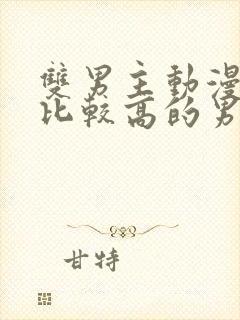 雙男主動漫
比較高的男
甘特